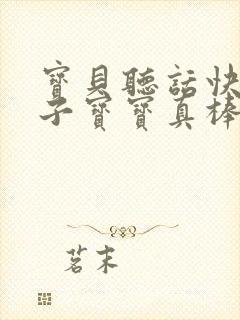 寶貝聽話快
子寶寶真棒
茗末